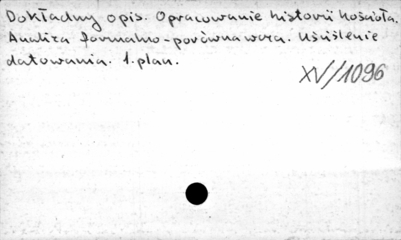 Dokładny opis. Opracowanie historii kościoła.
Analiza formalno-porównawcza. Uściślenie
datowania. 1. plan.
XV/1096